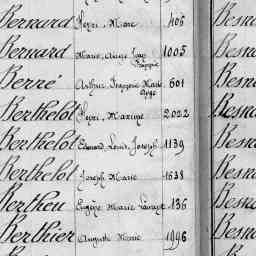 Bernard Henri, Marc 406 Besna
Bernard Marie, Aimé Jean 1005 Besna
François
Berré Arthur François Marie 601 Besna
Ange
Berthelot Henri, Maxime 2022 Besna
Berthelot Edmond, Louis, Joseph 1139 Besna
Berthelot Joseph Marie 1638 Besna
Bertheu Eugène Marie 136 Besna
Berthier Auguste Marie 1996 Besna